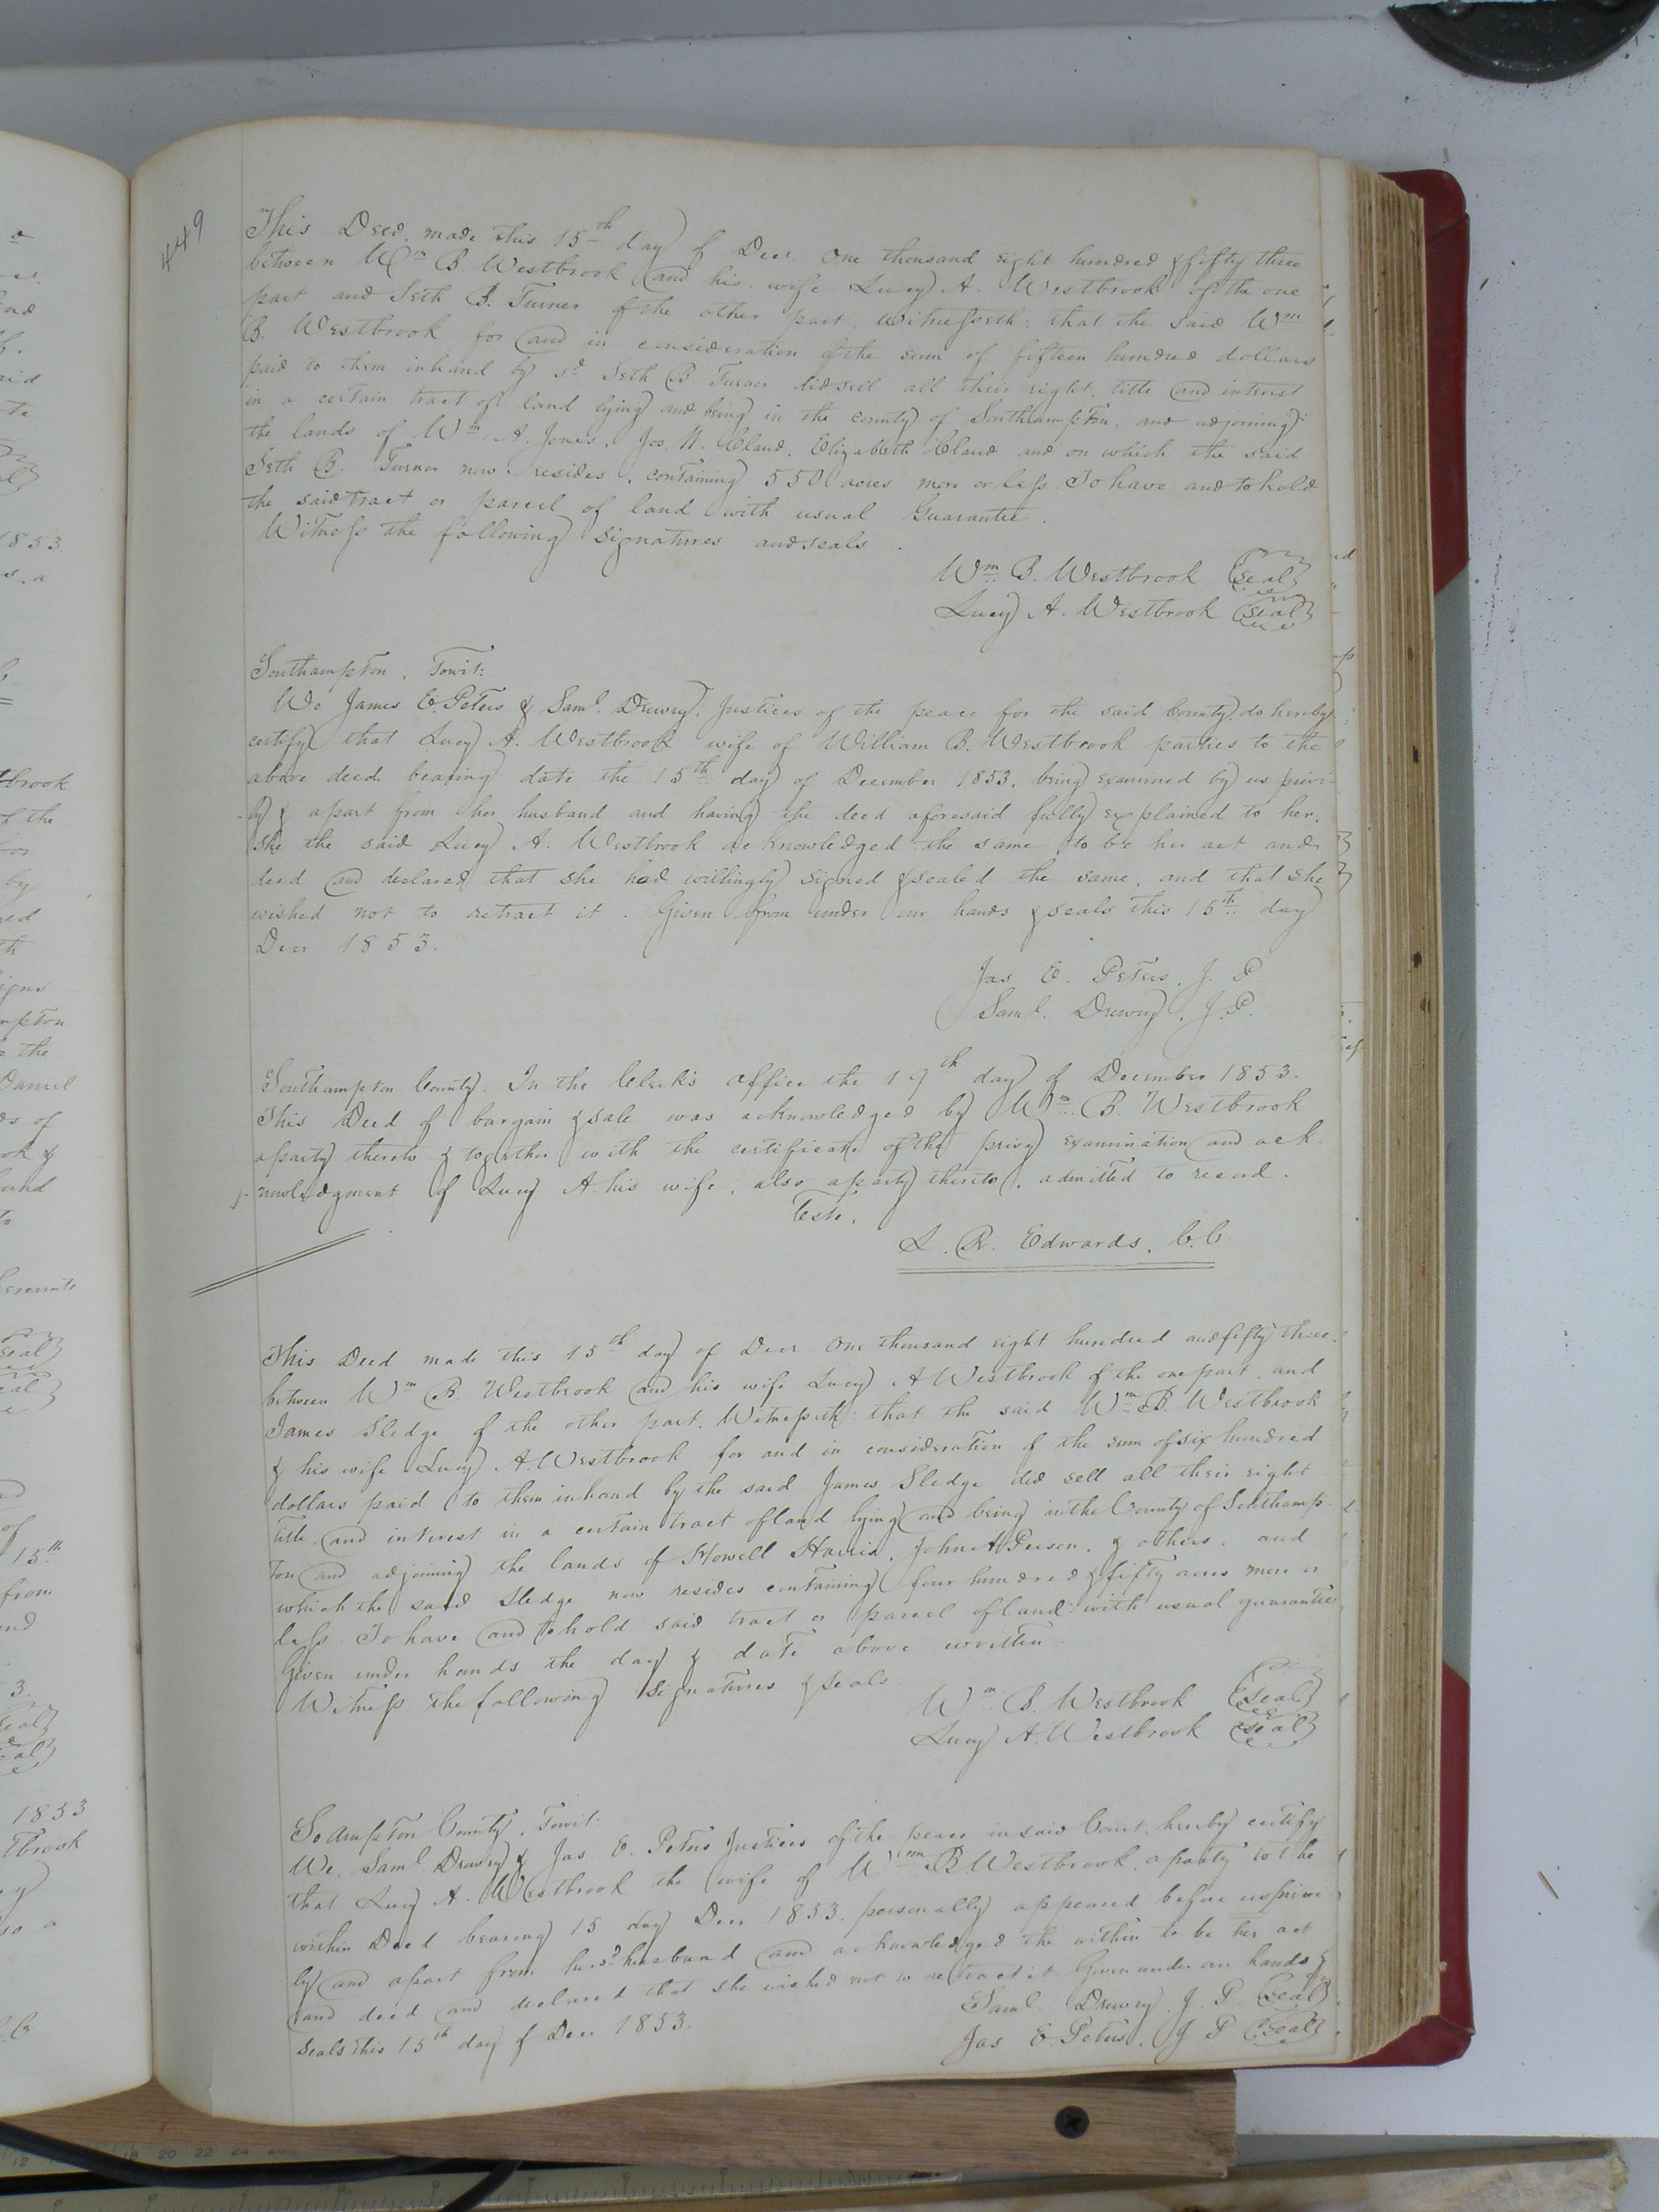 449
This Deed, made this 15th day of Decr. One thousand eight hundred & fifty three
between Wm B. Westbrook and his wife Lucy A. Westbrook of the one
part and Seth B. Turner of the other part Witnesseth: that the said Wm
B. Westbrook for and in consideration of the sum of fifteen hundred dollars
paid to them in hand by sd Seth B Turner did sell all their right, title and interest
in a certain tract of land lying and being in the county of Southampton, and adjoining
the lands of Wm A. Jones, Jos. N. Claud, Elizabeth Claud and on which the said
Seth B. Turner now resides, containing 550 acres more or less To have and to hold
the said tract or parcel of land with usual Guarantie.
Witness the following signatures and seals.
Wm B. Westbrook Seal
Lucy A. Westbrook Seal
Southampton, Towit:
We James E. Peters & Saml. Drewry, Justices of the peace for the said County, do hereby
certify that Lucy A. Westbrook wife of William B. Westbrook parties to the
above deed bearing date the 15th day of December 1853, being examined by us privi-
-ly & apart from her husband and having the deed aforesaid fully explained to her,
she the said Lucy A. Westbrook acknowledged the same to be her act and
deed and declared that she had willingly signed & sealed the same, and that she
wished not to retract it. Given from under our hands & seals this 15th day
Decr 1853.
Jas E. Peters, J. P
Saml. Drewry, J.P.
Southampton County. In the Clerk's office the 19th day of December 1853.
This Deed of bargain & sale was acknowledged by Wm B. Westbrook
a party thereto & together with the certificate of the privy examination and ack-
-nowledgment of Lucy A. his wife, also a party thereto, admitted to record.
Teste,
L. R. Edwards, C.C
This Deed made this 15th day of Decr One thousand eight hundred and fifty three
between Wm B. Westbrook and his wife Lucy A Westbrook of the one part, and
James Sledge of the other part. Witnesseth: that the said Wm B. Westbrook
& his wife Lucy A. Westbrook for and in consideration of the sum of six hundred
dollars paid to them in hand by the said James Sledge did sell all their right
title and interest in a certain tract of land lying and being in the County of Southamp-
ton and adjoining the lands of Howell Harris, John A Person, & others, and
which the said Sledge now resides containing four hundred & fifty acres more or
less To have and to hold said tract or parcel of land with usual guarantie
Given under hands the day & date above written
Witness the following signatures & seals
Wm B. Westbrook Seal
Lucy A. Westbrook Seal
So ampton County, Towit:
We, Saml. Drewry & Jas. E. Peters Justices of the peace in said Court, hereby certify
that Lucy A. Westbrook the wife of Wm B Westbrook, a party to the
within Deed bearing 15 day Decr 1853, personally appeared before us privi-
ly and apart from her sd husband and acknowledged the within to be her act
and deed and declared that she wished not to retract it Given under our hands &
seals this 15th day of Decr 1853.
Saml Drewry, J. P. Seal
Jas E. Peters, J P Seal